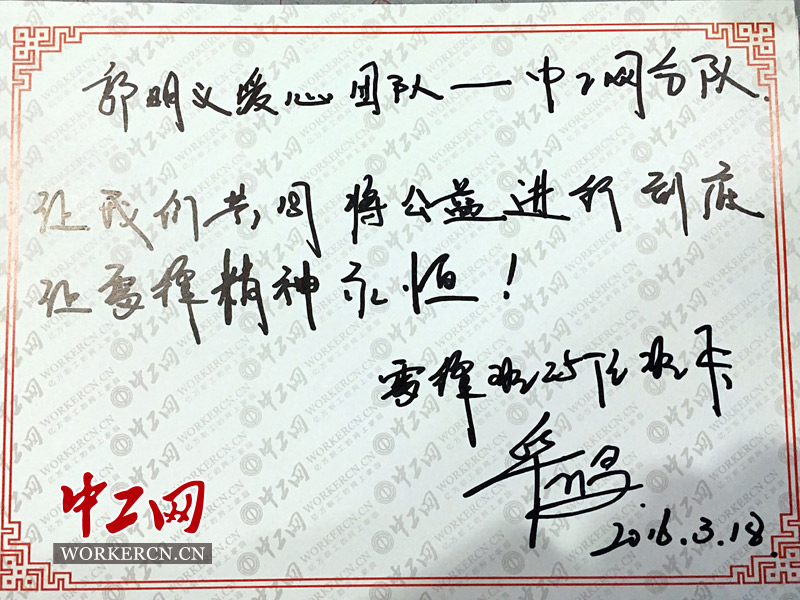 郭明义爱心团队——中工网分队.
让我们共同将公益进行到底
让雷锋精神永恒!
雷锋班25任班长
2016.3.18.
中工网
WORKERCN.CN